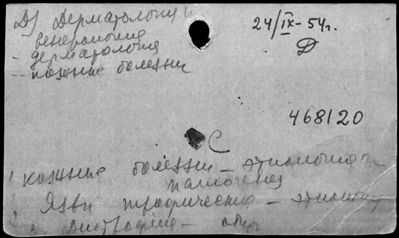 D) Дерматология и
венерология
24/IX-54г.
- дерматология
D
- кожные болезни
468120
С
1 кожные болезни - этиология и
патогенез
2 Язвы трофические - этиология
3